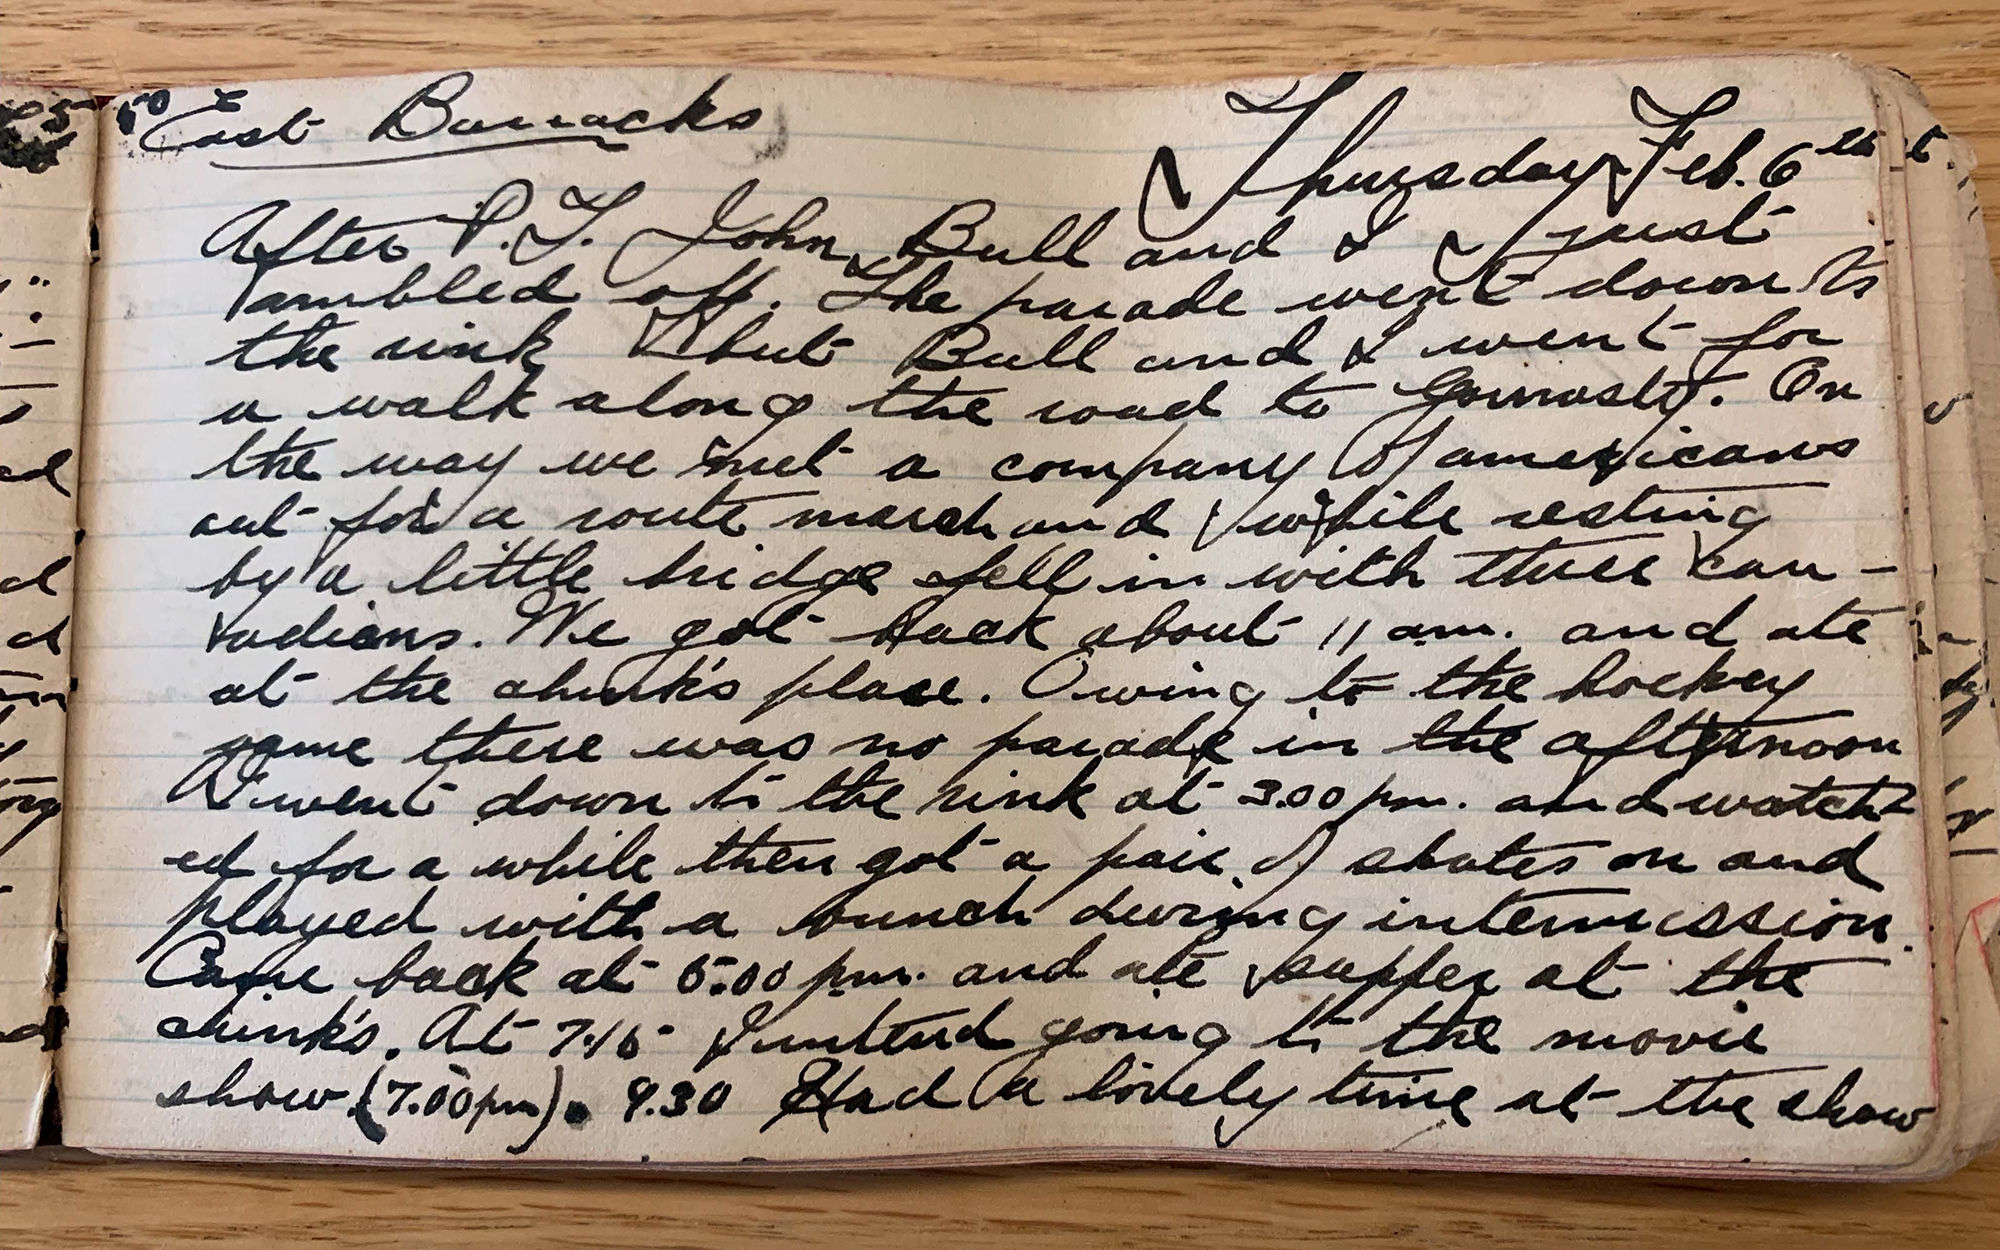 East Barracks
Thursday Feb. 6th
After P.T. John Bull and I just
ambled off. The parade went down to
the rink but Bull and I went for
a walk along the road to Gornosty. On
the way we met a company of americans
out for a route march and while resting
by a little bridge fell in with three can-
adians. We got back about 11 am. and ate
at the chink's place. Owing to the hockey
game there was no parade in the afternoon
I went down to the rink at 3.00 pm. and watch-
ed for a while then got a pair of skates on and
played with a bunch during intermission.
Came back at 5.00 pm. and ate supper at the
chink's. At 7.15 I intend going to the movie
show (7.00 pm). 9.30 Had a lovely time at the show